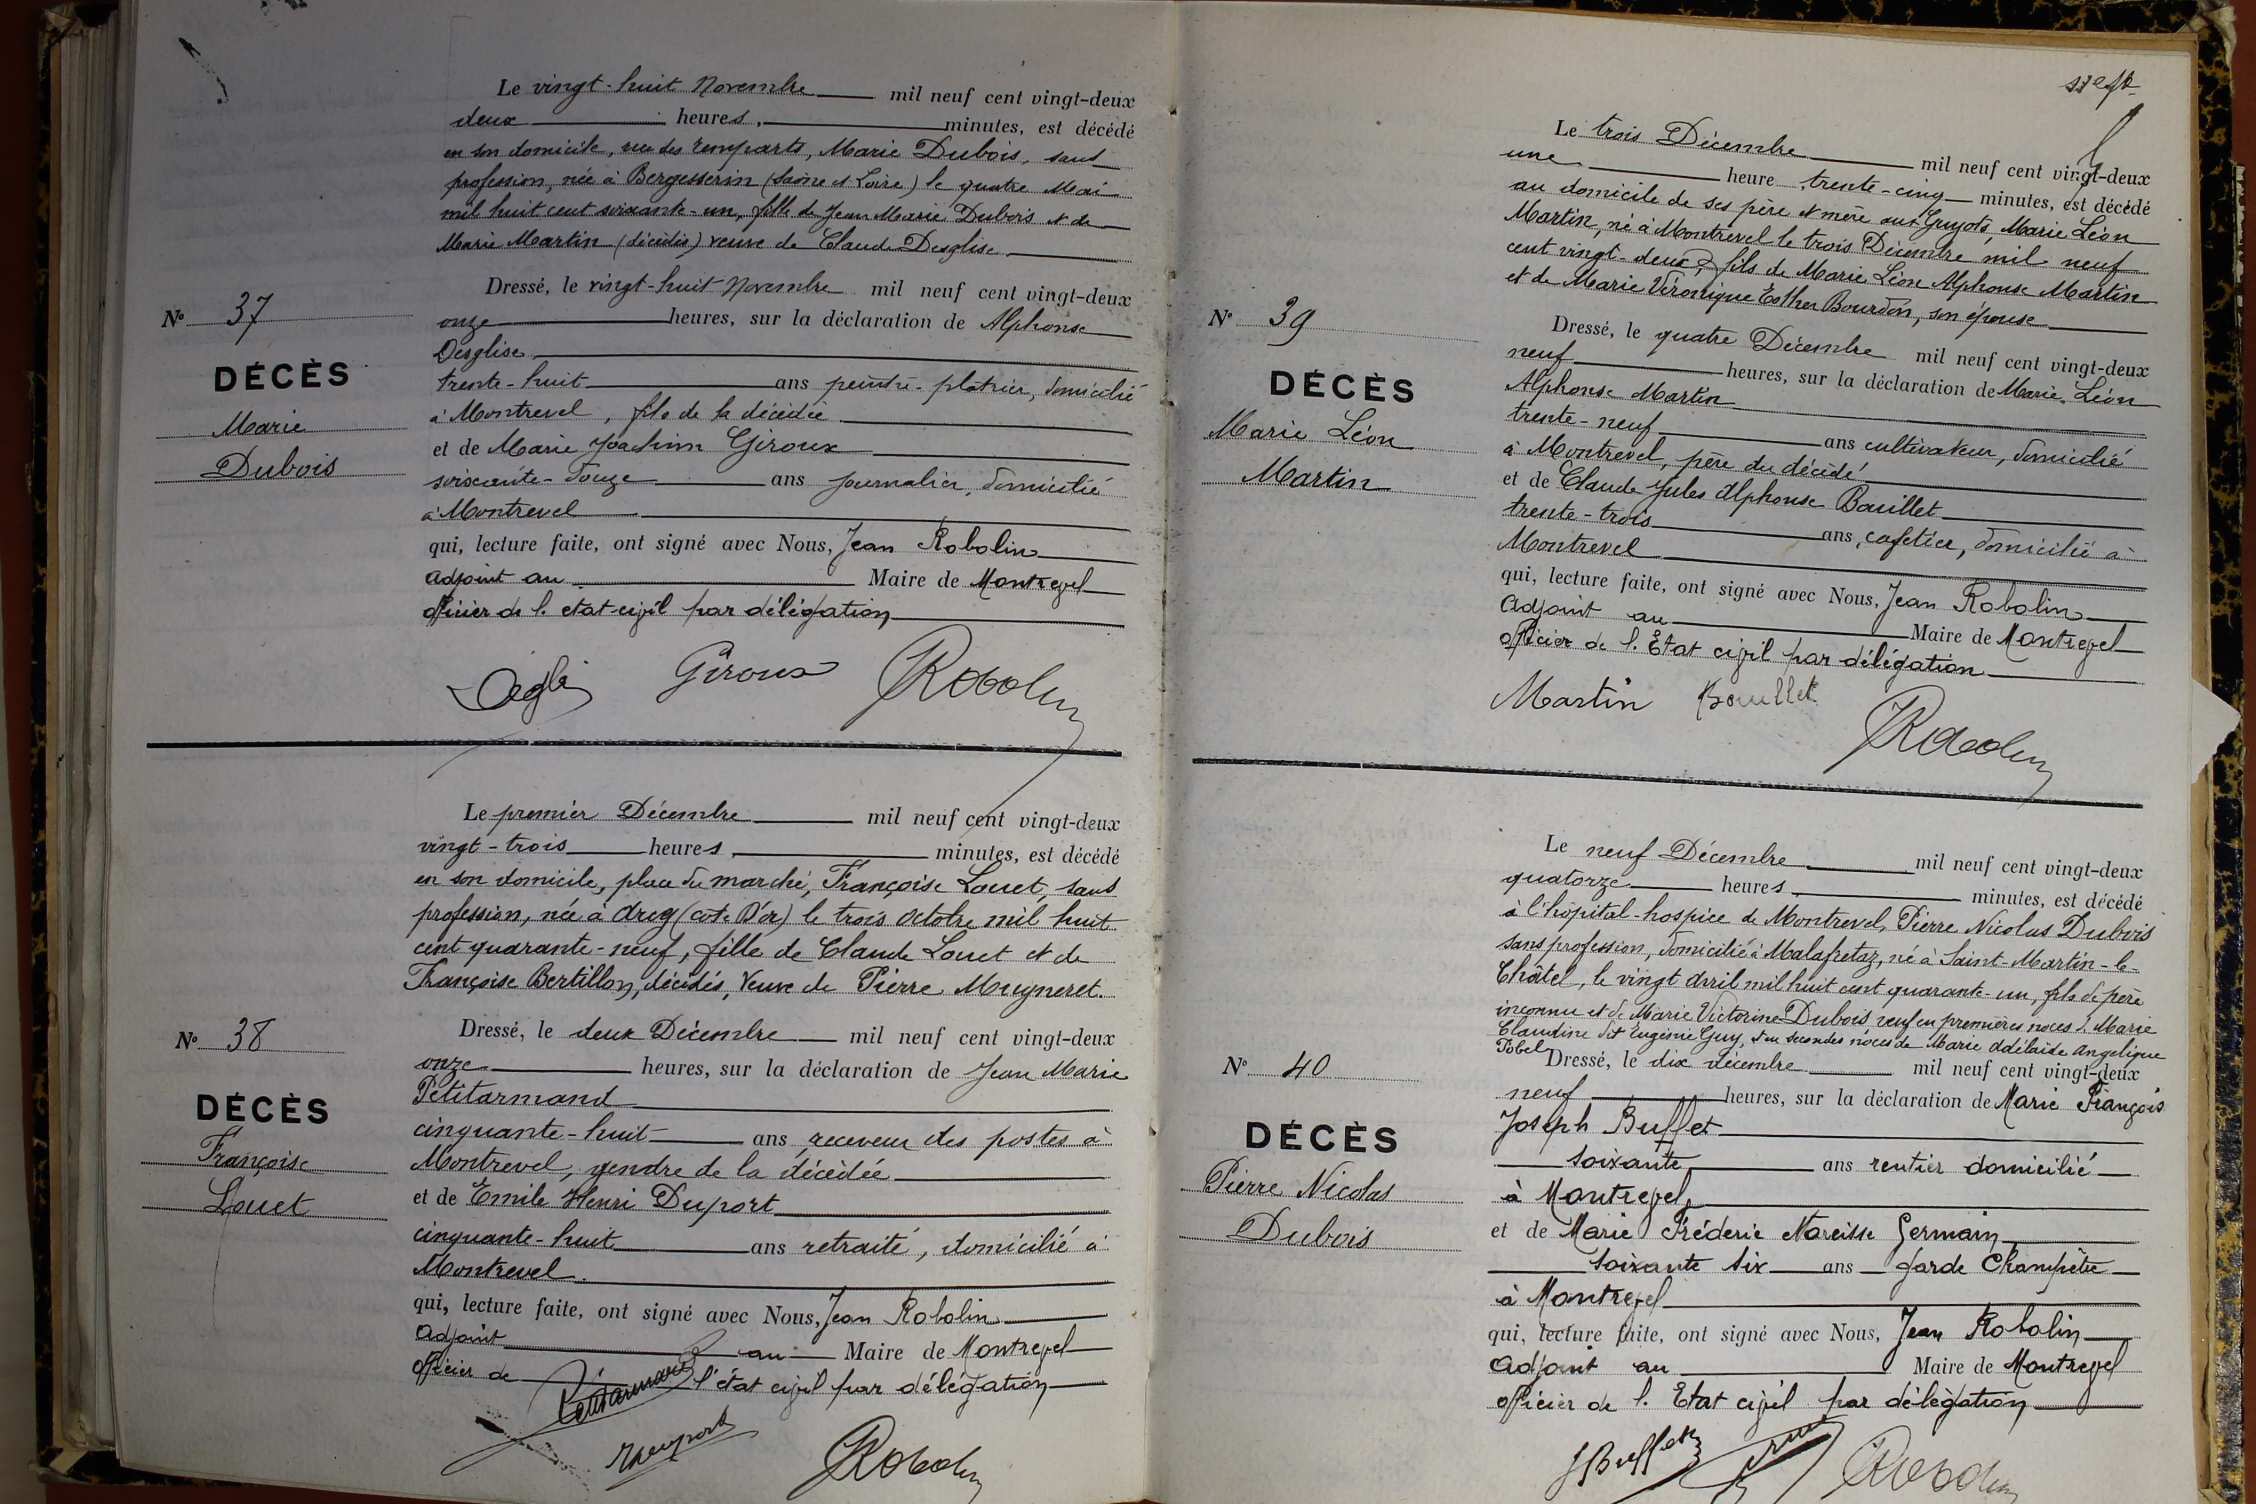 Le vingt-huit Novembre mil neuf cent vingt-deux
deux heures, minutes, est décédé
en son domicile, rue des remparts, Marie Dubois, sans
profession, née à Bergesserin (Saône et Loire) le quatre Mai
mil huit cent soixante-un, fille de Jean Marie Dubois et de
Marie Martin (décédés) veuve de Claude Desglise
Dressé, le vingt-huit Novembre mil neuf cent vingt-deux
N° 37
onze heures, sur la déclaration de Alphonse
Desglise
DÉCÈS
trente-huit ans peintre-plâtrier, domicilié
à Montrevel, fils de la décédée
Marie
et de Marie Joachim Giroux
Dubois
soixante-douze ans journalier, domicilié
à Montrevel
qui, lecture faite, ont signé avec Nous, Jean Robolin
adjoint au Maire de Montrevel
officier de l. etat-civil par délégation
Giroux Robolin
Le premier Décembre mil neuf cent vingt-deux
vingt-trois heures, minutes, est décédé
en son domicile, place du marché, Françoise Louet, sans
profession, née à (cote D'or) le trois octobre mil huit
cent quarante-neuf, fille de Claude Louet et de
Françoise Bertillon, décédés, Veuve de Pierre Mugneret.
Dressé, le deux Décembre mil neuf cent vingt-deux
N° 38
onze heures, sur la déclaration de Jean Marie
Petitarmand
DÉCÈS
cinquante-huit ans receveur des postes à
Françoise
Montrevel, gendre de la décédée
Louet
et de Emile Henri Duport
cinquante-huit ans retraité, domicilié à
Montrevel.
qui, lecture faite, ont signé avec Nous, Jean Robolin
adjoint au Maire de Montrevel
officier de l'état civil par délégation
Petitarmand
Duport Robolin
Le trois Décembre mil neuf cent vingt-deux
une heure trente-cinq minutes, est décédé
au domicile de ses père et mère aux Guyots, Marie Léon
Martin, né à Montrevel le trois Décembre mil neuf
cent vingt-deux, fils de Marie Léon Alphonse Martin
et de Marie Véronique Esther Bourdon, son épouse
N° 39
Dressé, le quatre Décembre mil neuf cent vingt-deux
neuf heures, sur la déclaration de Marie Léon
DÉCÈS
Alphonse Martin
Marie Léon
trente-neuf ans cultivateur, domicilié
Martin
à Montrevel, père du décédé
et de Claude Jules Alphonse Bouillet
trente-trois ans, cafetier, domicilié à
Montrevel
qui, lecture faite, ont signé avec Nous, Jean Robolin
adjoint au Maire de Montrevel
officier de l. Etat civil par délégation
Martin Bouillet
Robolin
Le neuf Décembre mil neuf cent vingt-deux
quatorze heures minutes, est décédé
à l'hôpital-hospice de Montrevel, Pierre Nicolas Dubois
sans profession, domicilié à Malafretaz, né à Saint-Martin-le-
Châtel, le vingt avril mil huit cent quarante-un, fils de père
inconnu et de Marie Victorine Dubois, veuf en premières noces d. Marie
Claudine dit Eugénie Guy, et en secondes noces de Marie Adélaïde Angelique
Pobel
Dressé, le dix décembre mil neuf cent vingt-deux
N° 40
neuf heures, sur la déclaration de Marie François
Joseph Buffet
DÉCÈS
soixante ans rentier domicilié
Pierre Nicolas
à Montrevel,
Dubois
et de Marie Fréderic Narcisse Germain
soixante six ans garde Champêtre
à Montrevel
qui, lecture faite, ont signé avec Nous, Jean Robolin
adjoint au Maire de Montrevel
officier de l. Etat civil par délégation
JBuffet Robolin